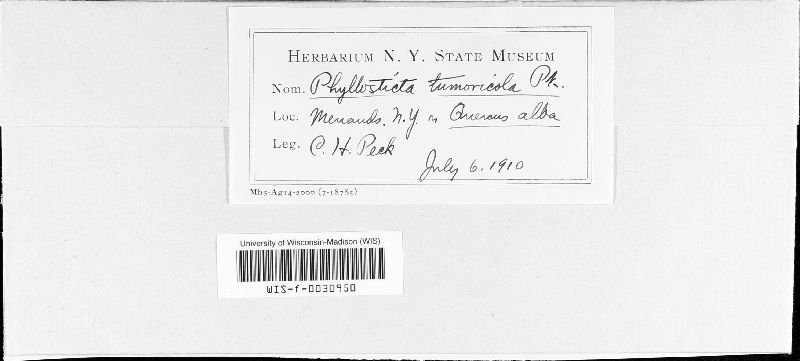 Herbarium N. Y. State Museum
Nom. Phyllosticta tumoricola Pk.
Loc. Menands, N.Y. on Quercus alba
Leg. C. H. Peck
July 6, 1910
Mb5-Ag14-2000 (7-18785)
University of Wisconsin-Madison (WIS)
WIS-f-0030950